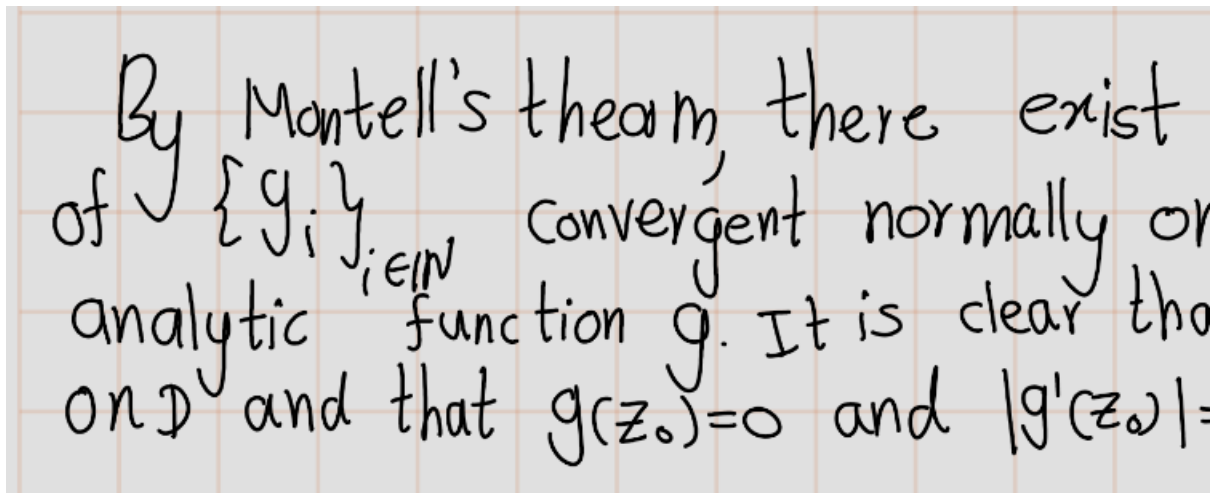 By Montell's theam, there exist
of {g_i}_{i∈ℕ} convergent normally or
analytic function g. It is clear tha
on D and that g(z₀)=0 and |g'(z₀)|=